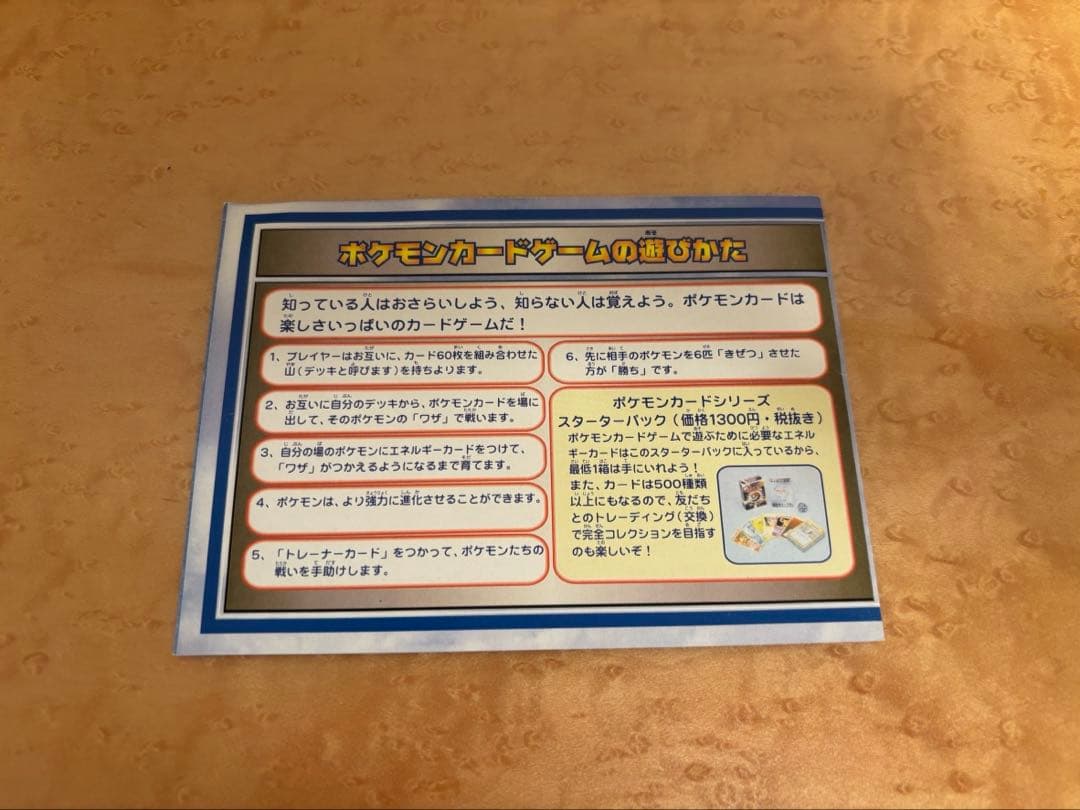 ポケモンカードゲームの遊びかた
知っている人はおさらいしよう、知らない人は覚えよう。ポケモンカードは
楽しさいっぱいのカードゲームだ！
1、プレイヤーはお互いに、カード60枚を組み合わせた
山（デッキと呼びます）を持ちよります。
2、お互いに自分のデッキから、ポケモンカードを場に
出して、そのポケモンの「ワザ」で戦います。
3、自分の場のポケモンにエネルギーカードをつけて、
「ワザ」がつかえるようになるまで育てます。
4、ポケモンは、より強力に進化させることができます。
5、「トレーナーカード」をつかって、ポケモンたちの
戦いを手助けします。
6、先に相手のポケモンを6匹「きぜつ」させた
方が「勝ち」です。
ポケモンカードシリーズ
スターターパック（価格1300円・税抜き）
ポケモンカードゲームで遊ぶために必要なエネル
ギーカードはこのスターターパックに入っているから、
最低1箱は手にいれよう！
また、カードは500種類
以上にもなるので、友だち
とのトレーディング（交換）
で完全コレクションを目指す
のも楽しいぞ！